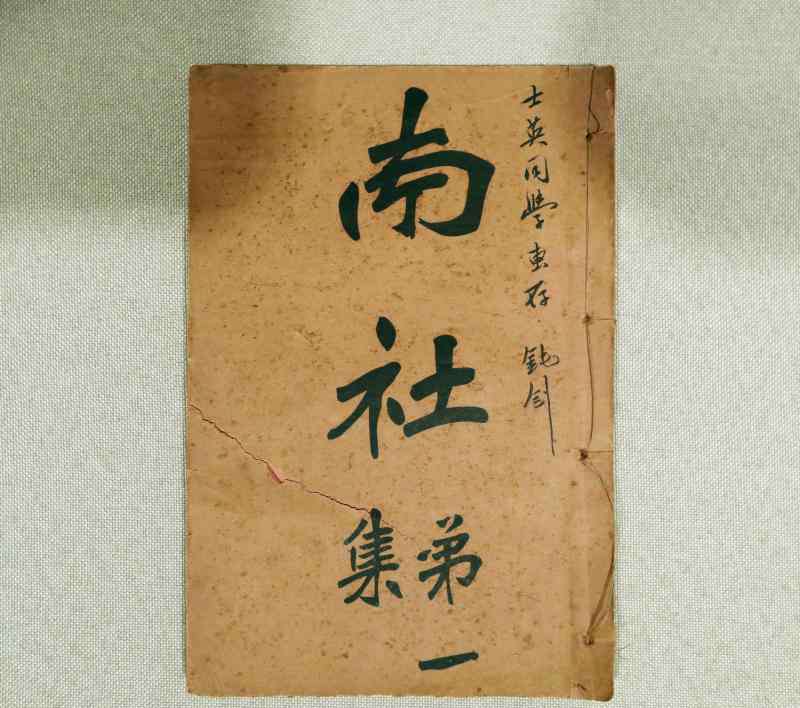 士英同學惠存 鈍劍
南社
第一
集